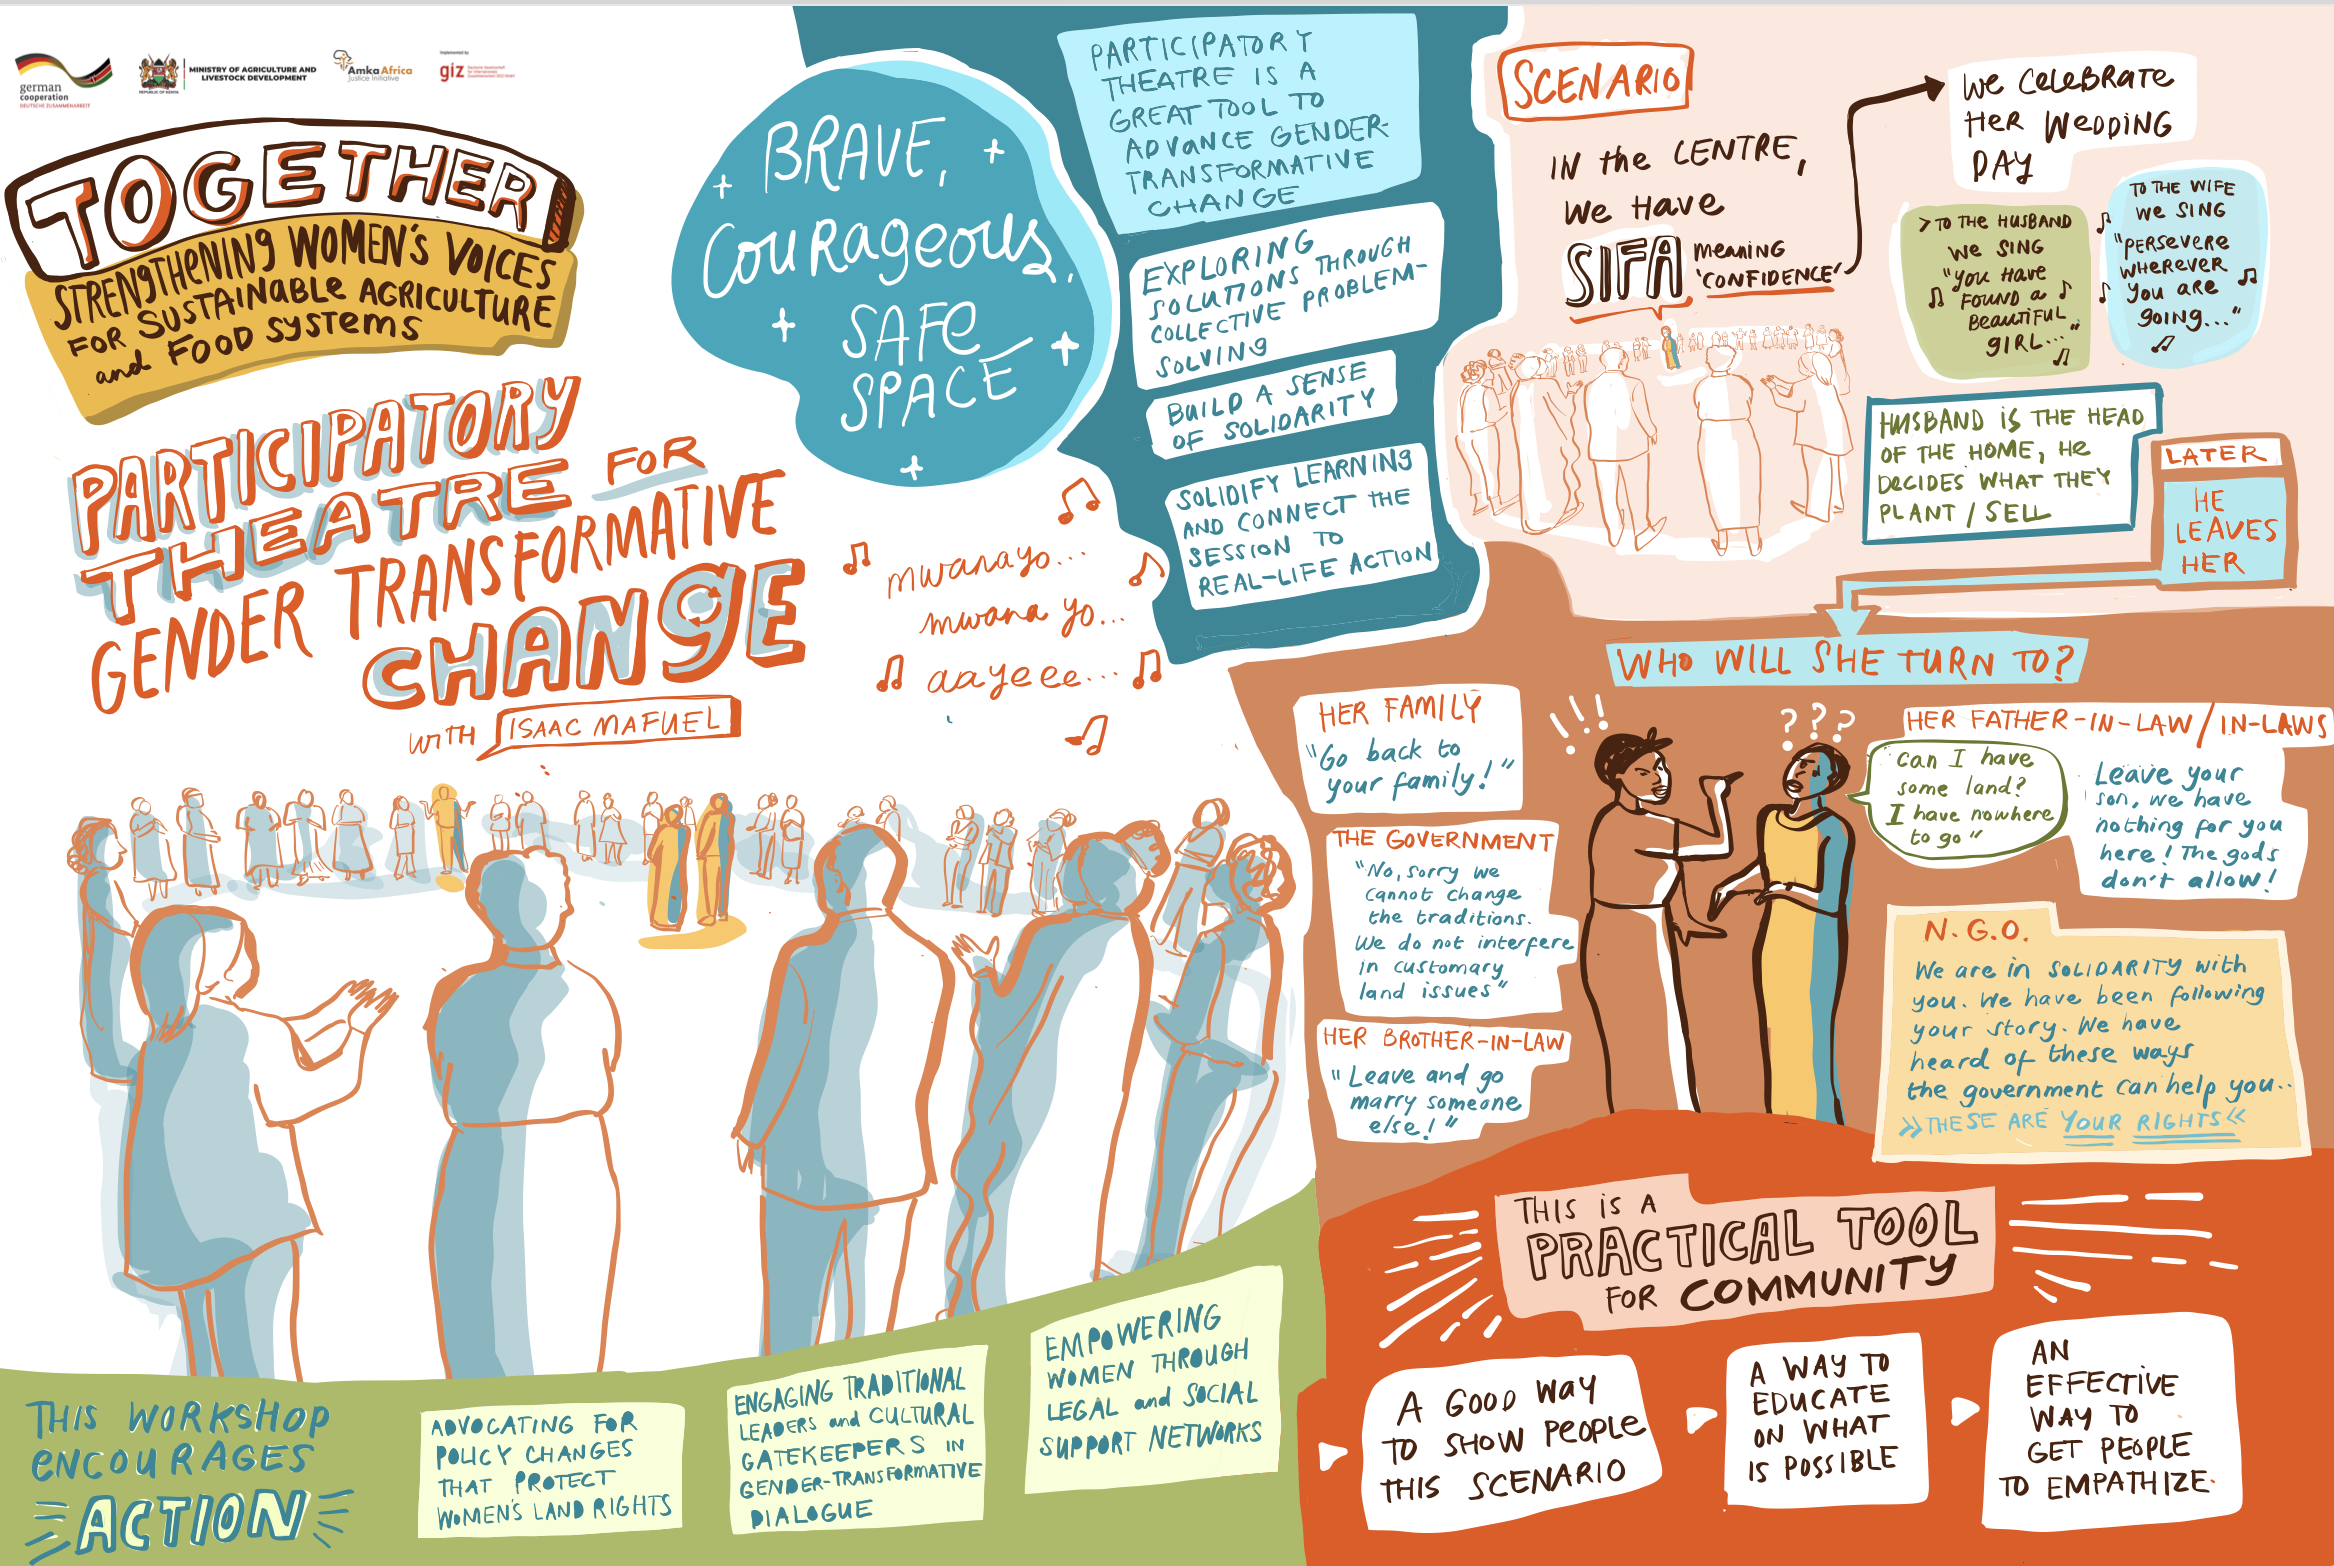 german
cooperation
DEUTSCHE ZUSAMMENARBEIT
REPUBLIC OF KENYA
MINISTRY OF AGRICULTURE AND
LIVESTOCK DEVELOPMENT
AmkaAfrica
Justice Initiative
Implemented by
giz
TOGETHER
STRENGTHENING WOMEN'S VOICES
FOR SUSTAINABLE AGRICULTURE
and FOOD SYSTEMS
PARTICIPATORY
THEATRE FOR
GENDER TRANSFORMATIVE
CHANGE
WITH ISAAC MAFUEL
BRAVE,
COURAGEOUS,
SAFE
SPACE
mwanayo...
mwana yo...
aayeee...
PARTICIPATORY
THEATRE IS A
GREAT TOOL TO
ADVANCE GENDER-
TRANSFORMATIVE
CHANGE
EXPLORING
SOLUTIONS THROUGH
COLLECTIVE PROBLEM-
SOLVING
BUILD A SENSE
OF SOLIDARITY
SOLIDIFY LEARNING
AND CONNECT THE
SESSION TO
REAL-LIFE ACTION
SCENARIO
IN the CENTRE,
We Have
SIFA meaning
'CONFIDENCE'
We Celebrate
Her Wedding
DAY
> TO THE HUSBAND
We SING
"you Have
FOUND a
Beautiful
GIRL..."
TO THE WIFE
We SING
"PERSEVERE
WHEREVER
you are
going..."
HUSBAND is THE HEAD
OF THE HOME, He
DECIDES WHAT THEY
PLANT / SELL
LATER
HE
LEAVES
HER
WHO WILL SHE TURN TO?
HER FAMILY
"Go back to
your family!"
THE GOVERNMENT
"No, sorry we
cannot change
the traditions.
We do not interfere
in customary
land issues"
HER BROTHER-IN-LAW
"Leave and go
marry someone
else!"
!!!
???
HER FATHER-IN-LAW/IN-LAWS
Can I have
some land?
I have nowhere
to go"
Leave your
son, we have
nothing for you
here! The gods
don't allow!
N.G.O.
We are in SOLIDARITY with
you. We have been following
your story. We have
heard of these ways
the government can help you..
>> THESE ARE YOUR RIGHTS <<
THIS IS A
PRACTICAL TOOL
FOR COMMUNITY
A GOOD WAY
TO SHOW PEOPLE
THIS SCENARIO
A WAY TO
EDUCATE
ON WHAT
IS POSSIBLE
AN
EFFECTIVE
WAY TO
GET PEOPLE
TO EMPATHIZE.
THIS WORKSHOP
ENCOURAGES
ACTION
ADVOCATING FOR
POLICY CHANGES
THAT PROTECT
WOMEN'S LAND RIGHTS
ENGAGING TRADITIONAL
LEADERS and CULTURAL
GATEKEEPERS IN
GENDER-TRANSFORMATIVE
DIALOGUE
EMPOWERING
WOMEN THROUGH
LEGAL and SOCIAL
SUPPORT NETWORKS